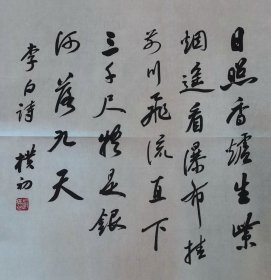 日照香爐生紫
烟遙看瀑布挂
前川飛流直下
三千尺疑是銀
河落九天
李白詩 樸初